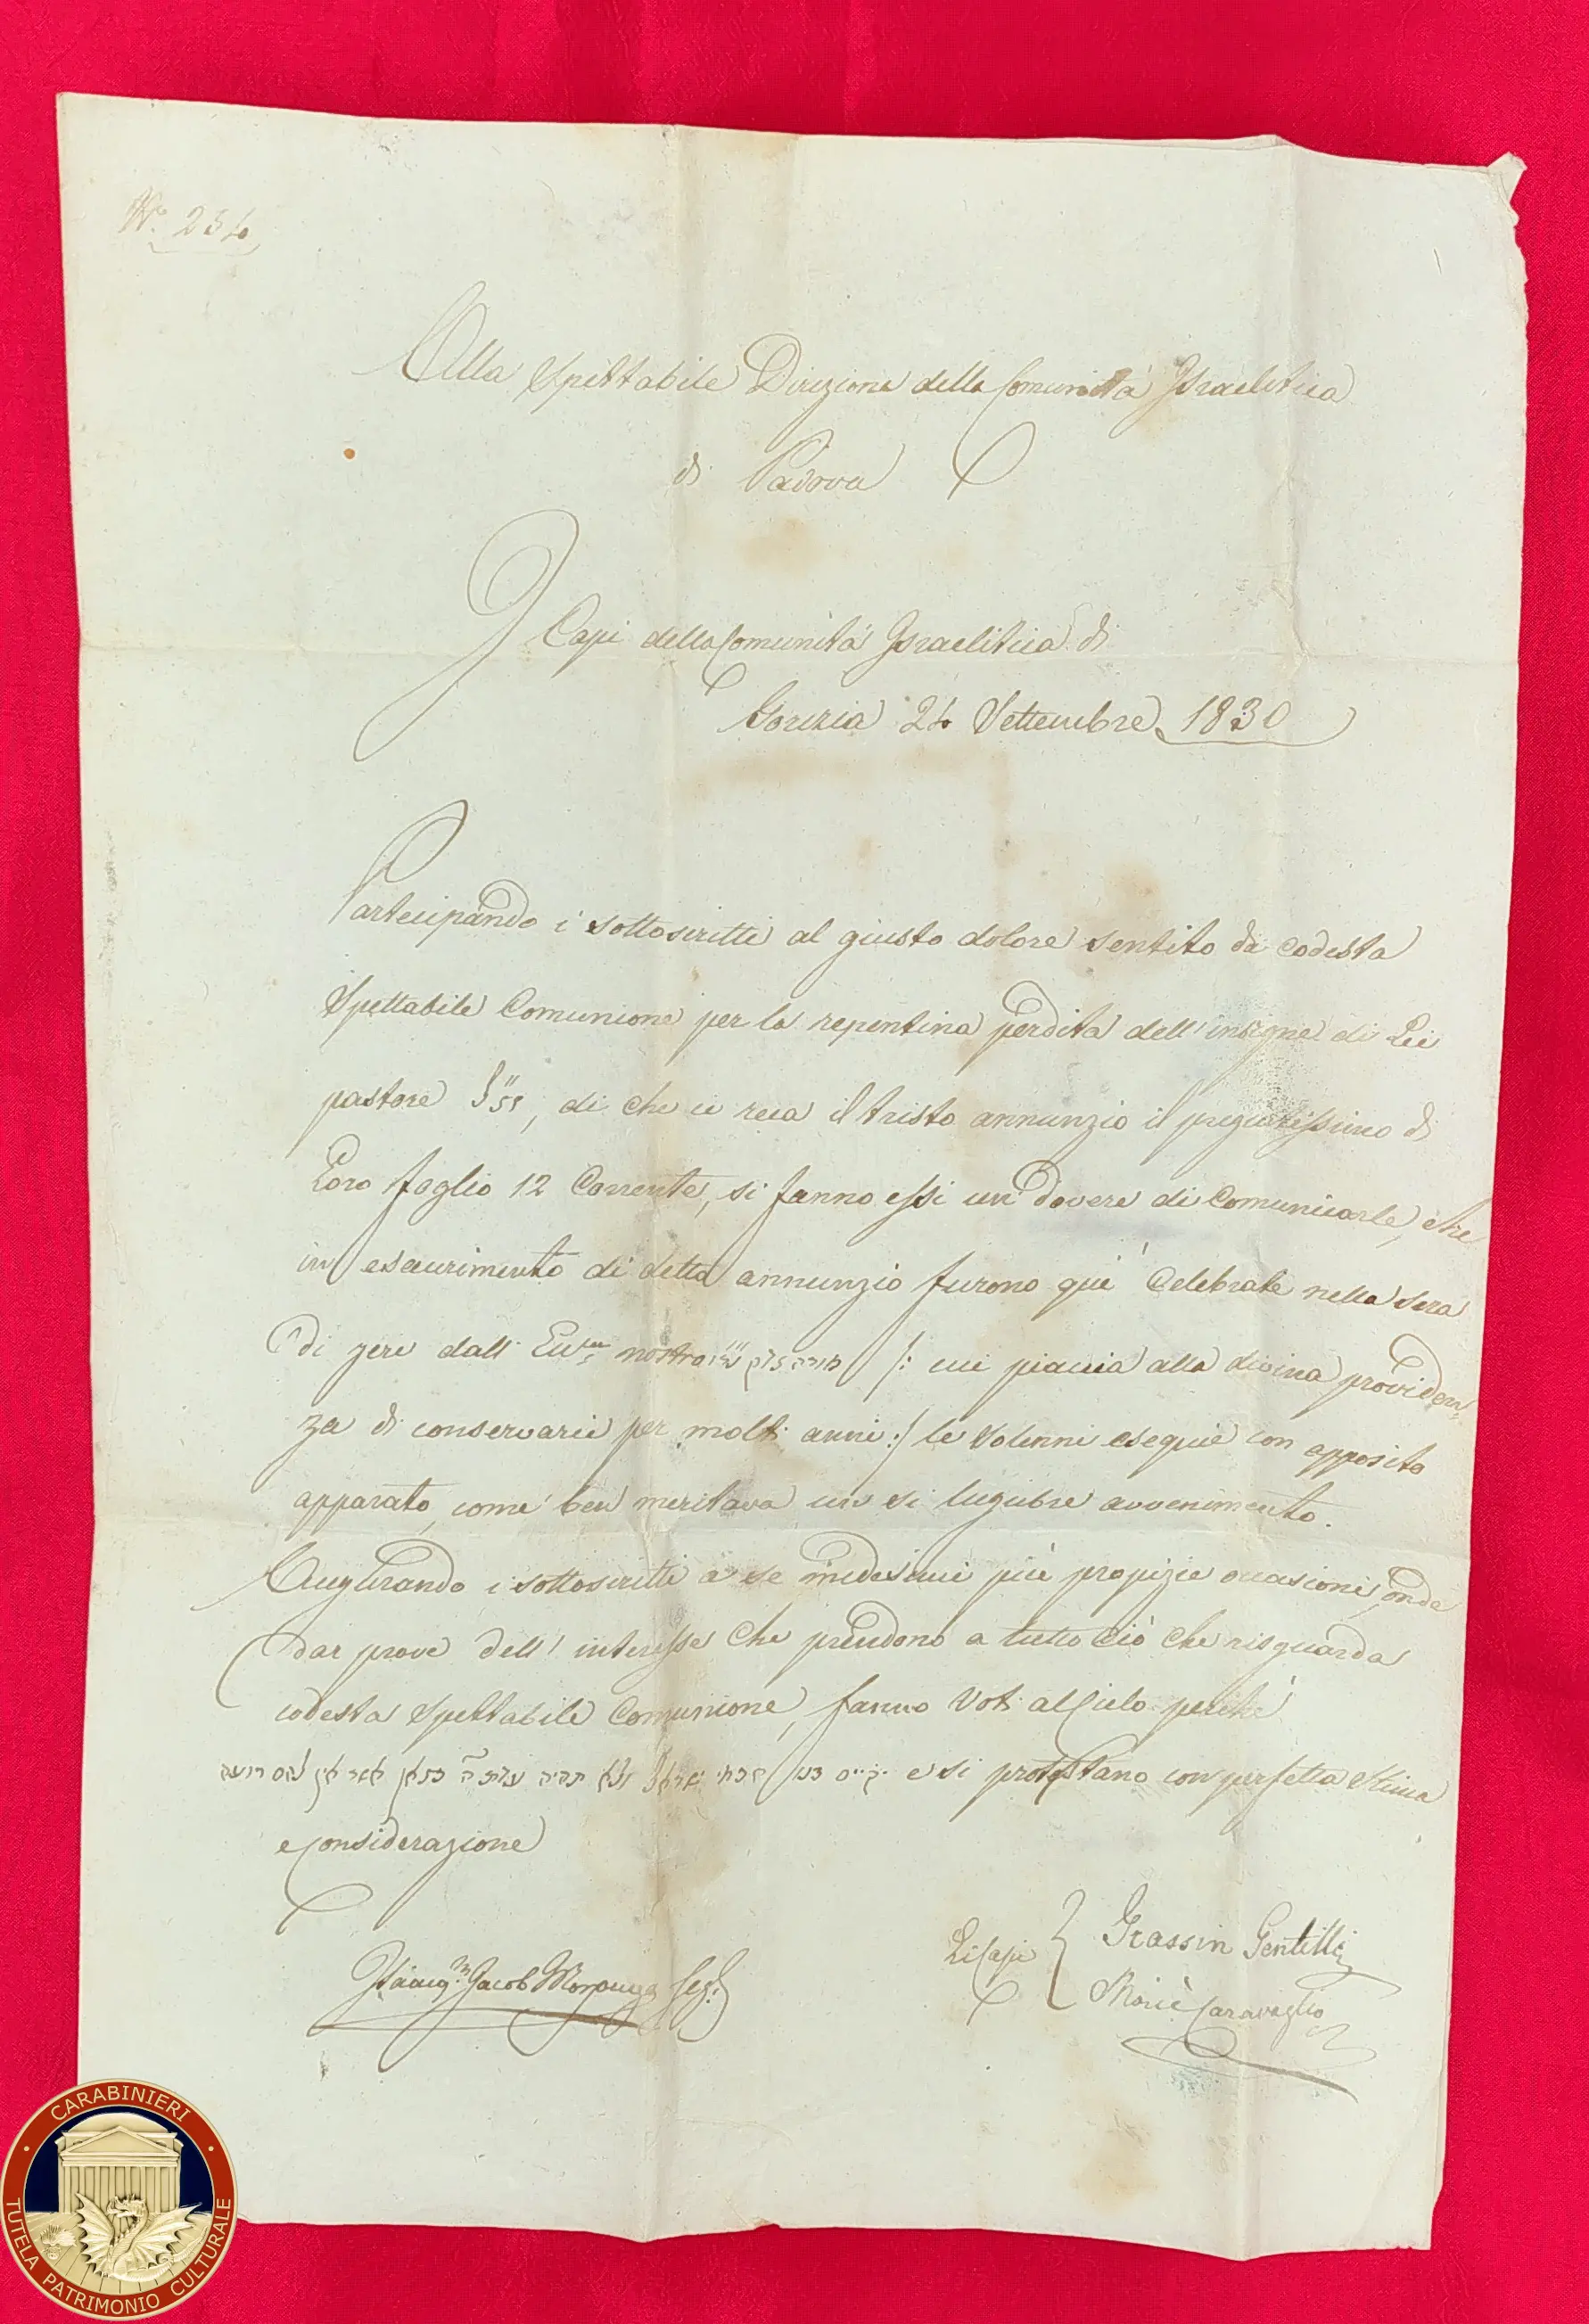 N.° 234
Alla Spettabile Direzione della Comunità Israelitica
di Padova
I Capi della Comunità Israelitica di
Gorizia 24 Settembre 1830
Partecipando i sottoscritti al giusto dolore sentito da codesta
Spettabile Comunione per la repentina perdita dell'insigne di Lei
pastore, di che ci reca il tristo annunzio il pregiatissimo di
Loro foglio 12 Corrente, si fanno essi un dovere di Comunicarle, che
in esaurimento di detto annunzio furono quì Celebrate nella sera
di jeri dall' nostro /: cui piaccia alla divina providen-
za di conservarci per molti anni :/ le Solenni esequie con apposito
apparato, come ben meritava un si lugubre avvenimento.
Augurando i sottoscritti a se medesimi più propizie occasioni, onde
dar prove dell' interesse che prendono a tutto ciò che risguarda
codesta Spettabile Comunione, fanno Voti al Cielo perchè
e si protestano con perfetta Stima
e Considerazione
Li Capi
Grassin Gentilli
Moisè Caravaglio
Jacob Morpurgo Seg.
CARABINIERI
TUTELA PATRIMONIO CULTURALE